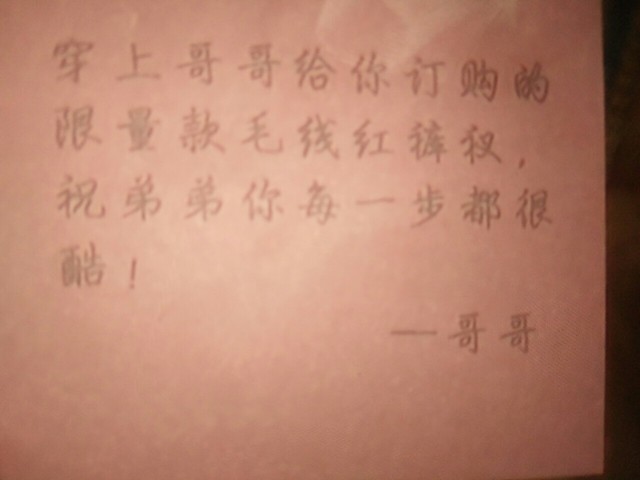 穿上哥哥给你订购的
限量款毛线红裤衩,
祝弟弟你每一步都很
酷!
一哥哥